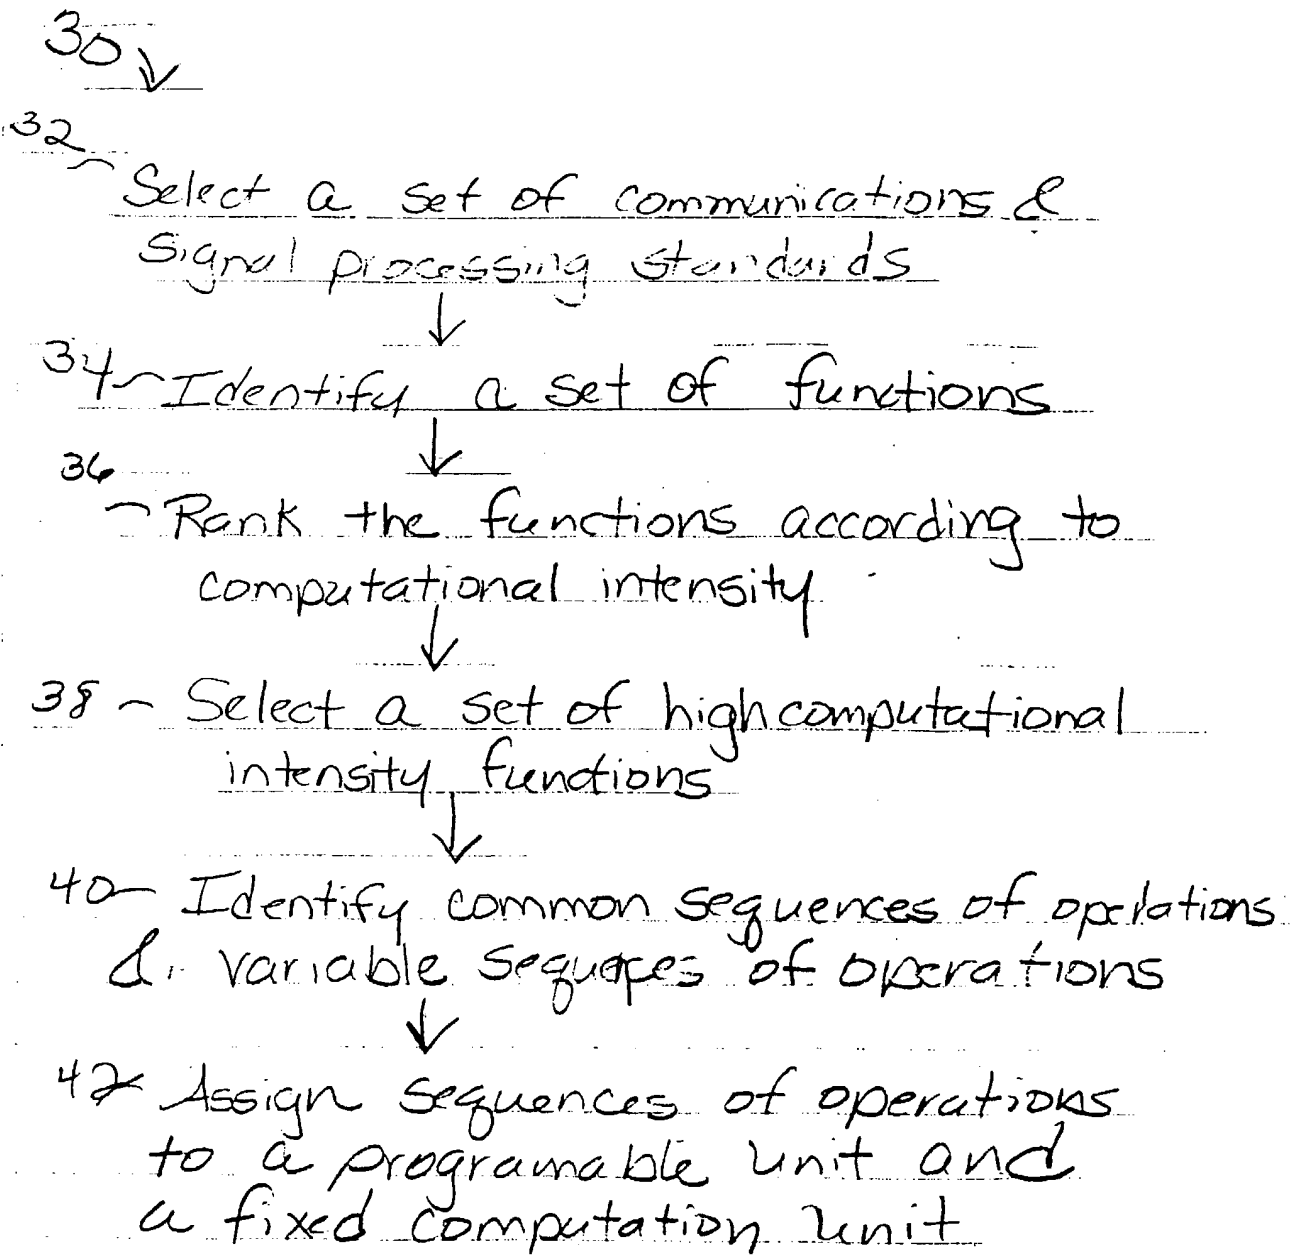 30
32
Select a set of communications &
Signal processing standards
34 Identify a set of functions
36
Rank the functions according to
computational intensity
38 - Select a set of high computational
intensity functions
40- Identify common sequences of operations
& variable sequences of operations
42 Assign sequences of operations
to a programable unit and
a fixed computation unit